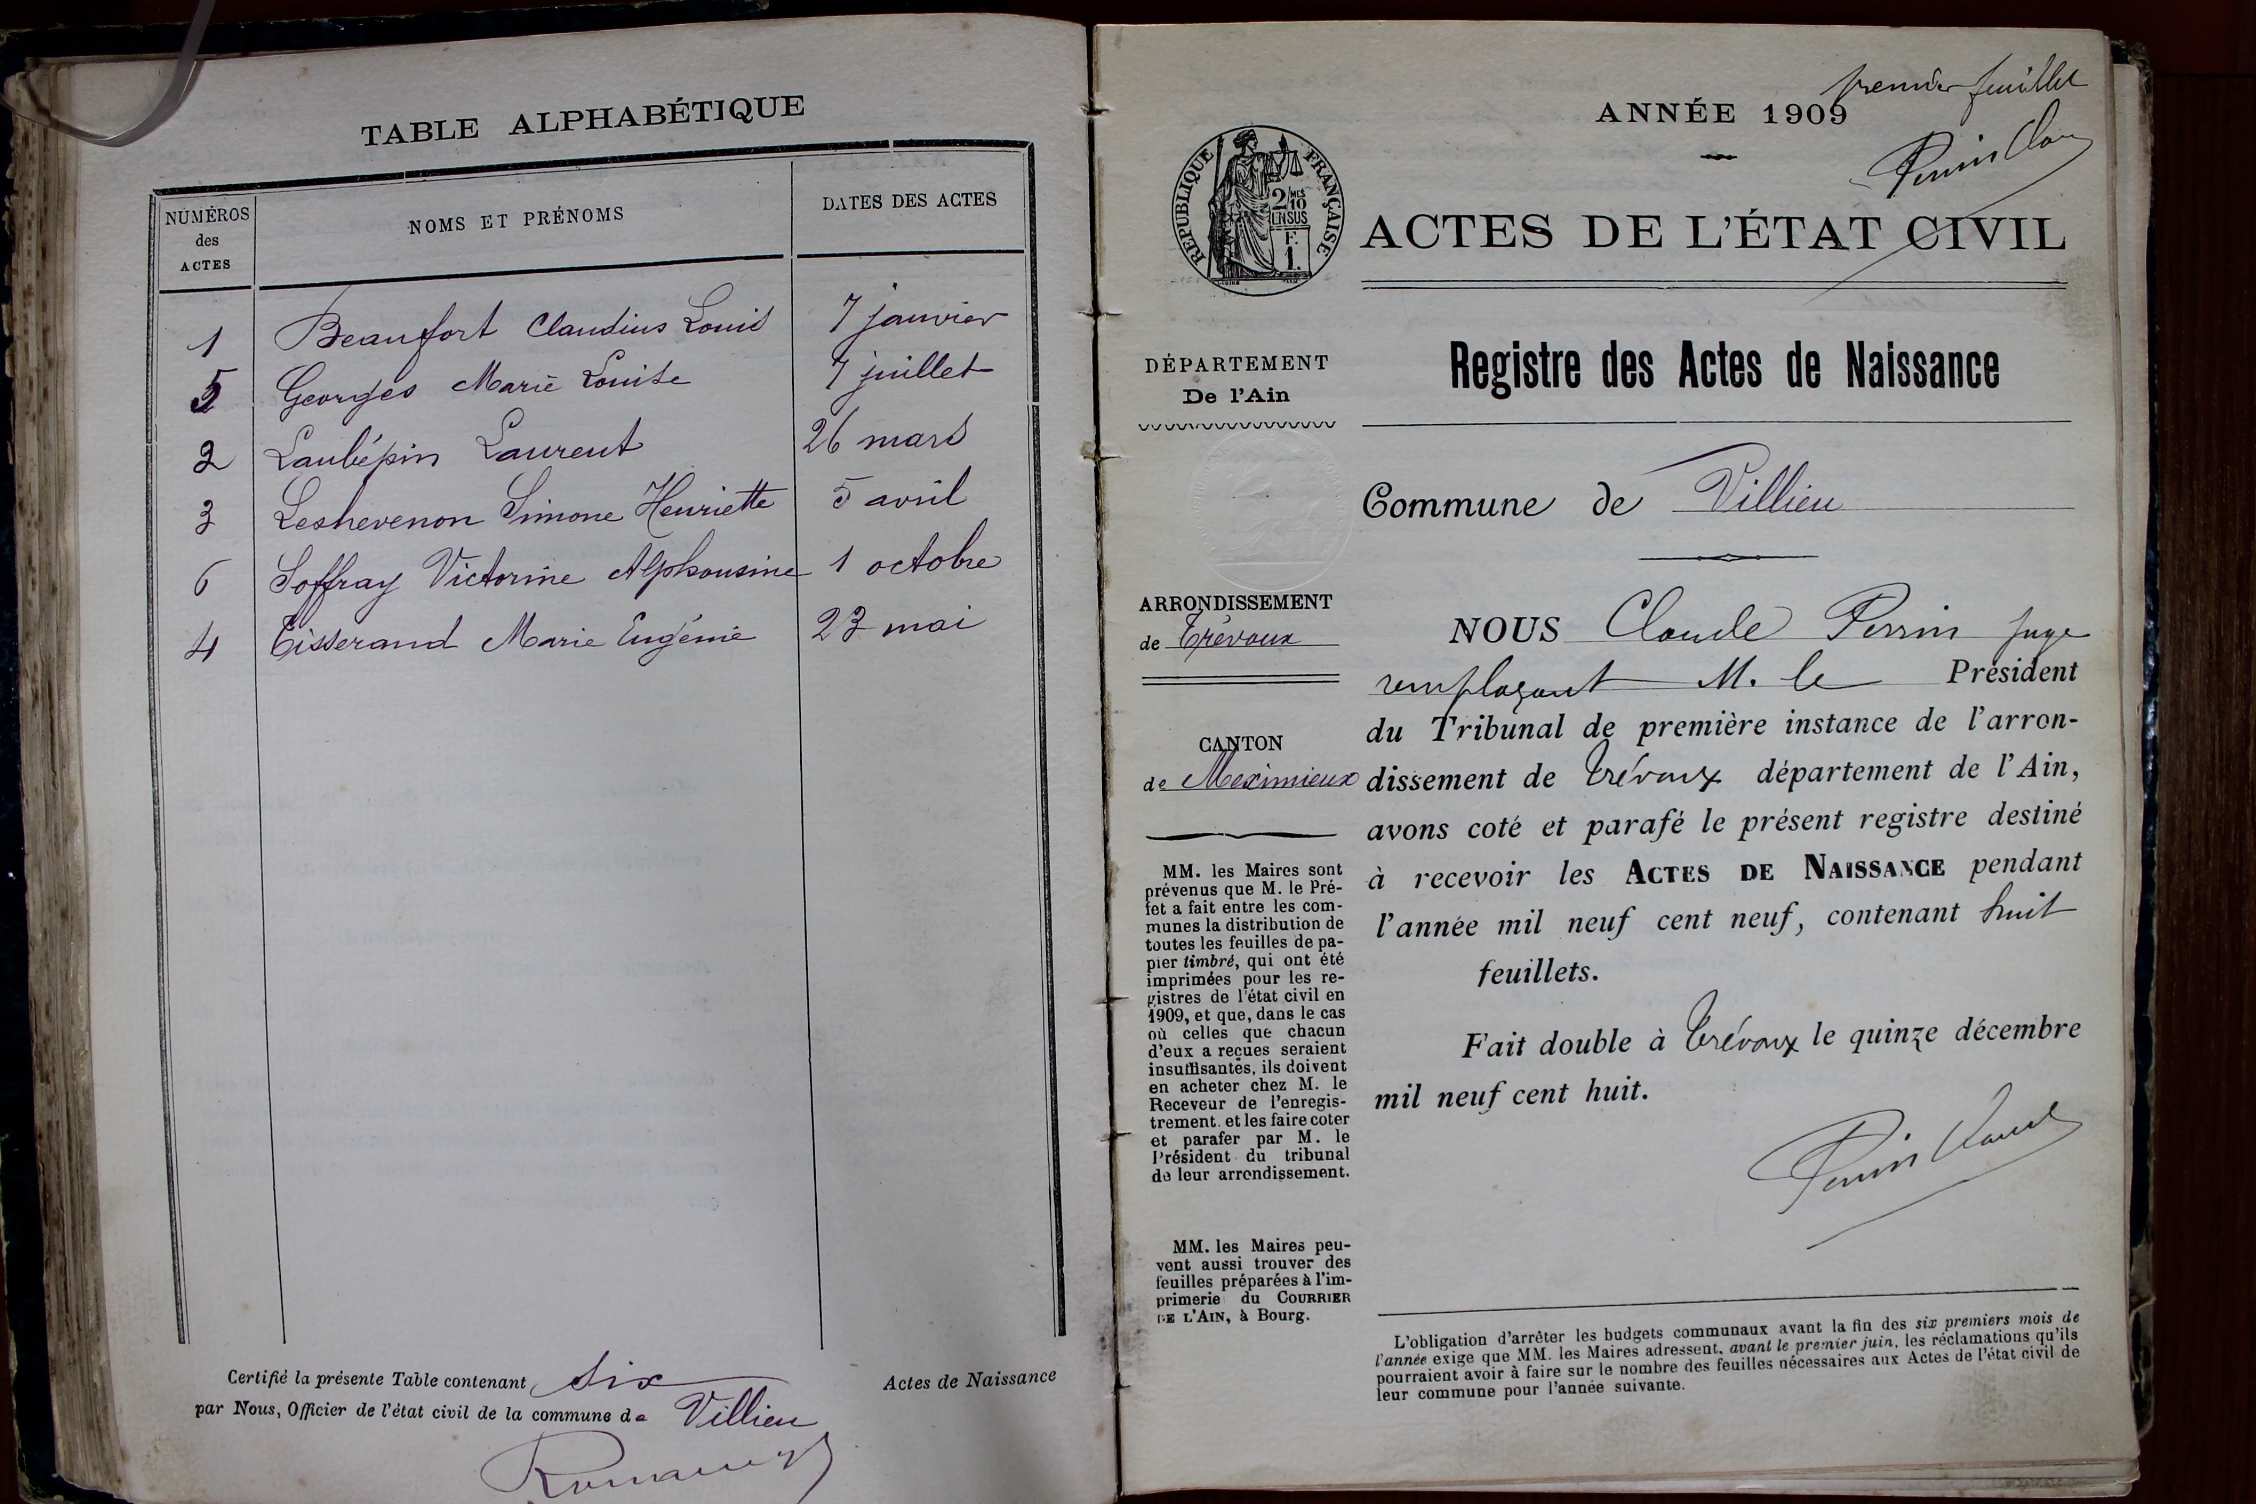 TABLE ALPHABÉTIQUE
NUMÉROS des ACTES NOMS ET PRÉNOMS DATES DES ACTES
1 Beaufort Claudius Louis 7 janvier
5 Georges Marie Louise 7 juillet
2 Laubépin Laurent 26 mars
3 Leshevenon Simone Henriette 5 avril
6 Soffray Victorine Alphonsine 1 octobre
4 Tisserand Marie Eugénie 23 mai
Certifié la présente Table contenant six Actes de Naissance
par Nous, Officier de l'état civil de la commune de Villieu
premier feuillet
ANNÉE 1909
Perrin Clau
RÉPUBLIQUE FRANÇAISE
2/10 MES
EN SUS
F.
1.
ACTES DE L'ÉTAT CIVIL
DÉPARTEMENT
De l'Ain
ARRONDISSEMENT
de Trévoux
CANTON
de Meximieux
MM. les Maires sont
prévenus que M. le Pré-
fet a fait entre les com-
munes la distribution de
toutes les feuilles de pa-
pier timbré, qui ont été
imprimées pour les re-
gistres de l'état civil en
1909, et que, dans le cas
où celles que chacun
d'eux a reçues seraient
insuffisantes, ils doivent
en acheter chez M. le
Receveur de l'enregis-
trement. et les faire coter
et parafer par M. le
Président du tribunal
de leur arrondissement.
MM. les Maires peu-
vent aussi trouver des
feuilles préparées à l'im-
primerie du COURRIER
DE L'AIN, à Bourg.
Registre des Actes de Naissance
Commune de Villieu
NOUS Claude Perrin juge
remplaçant M. le Président
du Tribunal de première instance de l'arron-
dissement de Trévoux département de l'Ain,
avons coté et parafé le présent registre destiné
à recevoir les ACTES DE NAISSANCE pendant
l'année mil neuf cent neuf, contenant huit
feuillets.
Fait double à Trévoux le quinze décembre
mil neuf cent huit.
Perrin Claude
L'obligation d'arrêter les budgets communaux avant la fin des six premiers mois de
l'année exige que MM. les Maires adressent, avant le premier juin, les réclamations qu'ils
pourraient avoir à faire sur le nombre des feuilles nécessaires aux Actes de l'état civil de
leur commune pour l'année suivante.